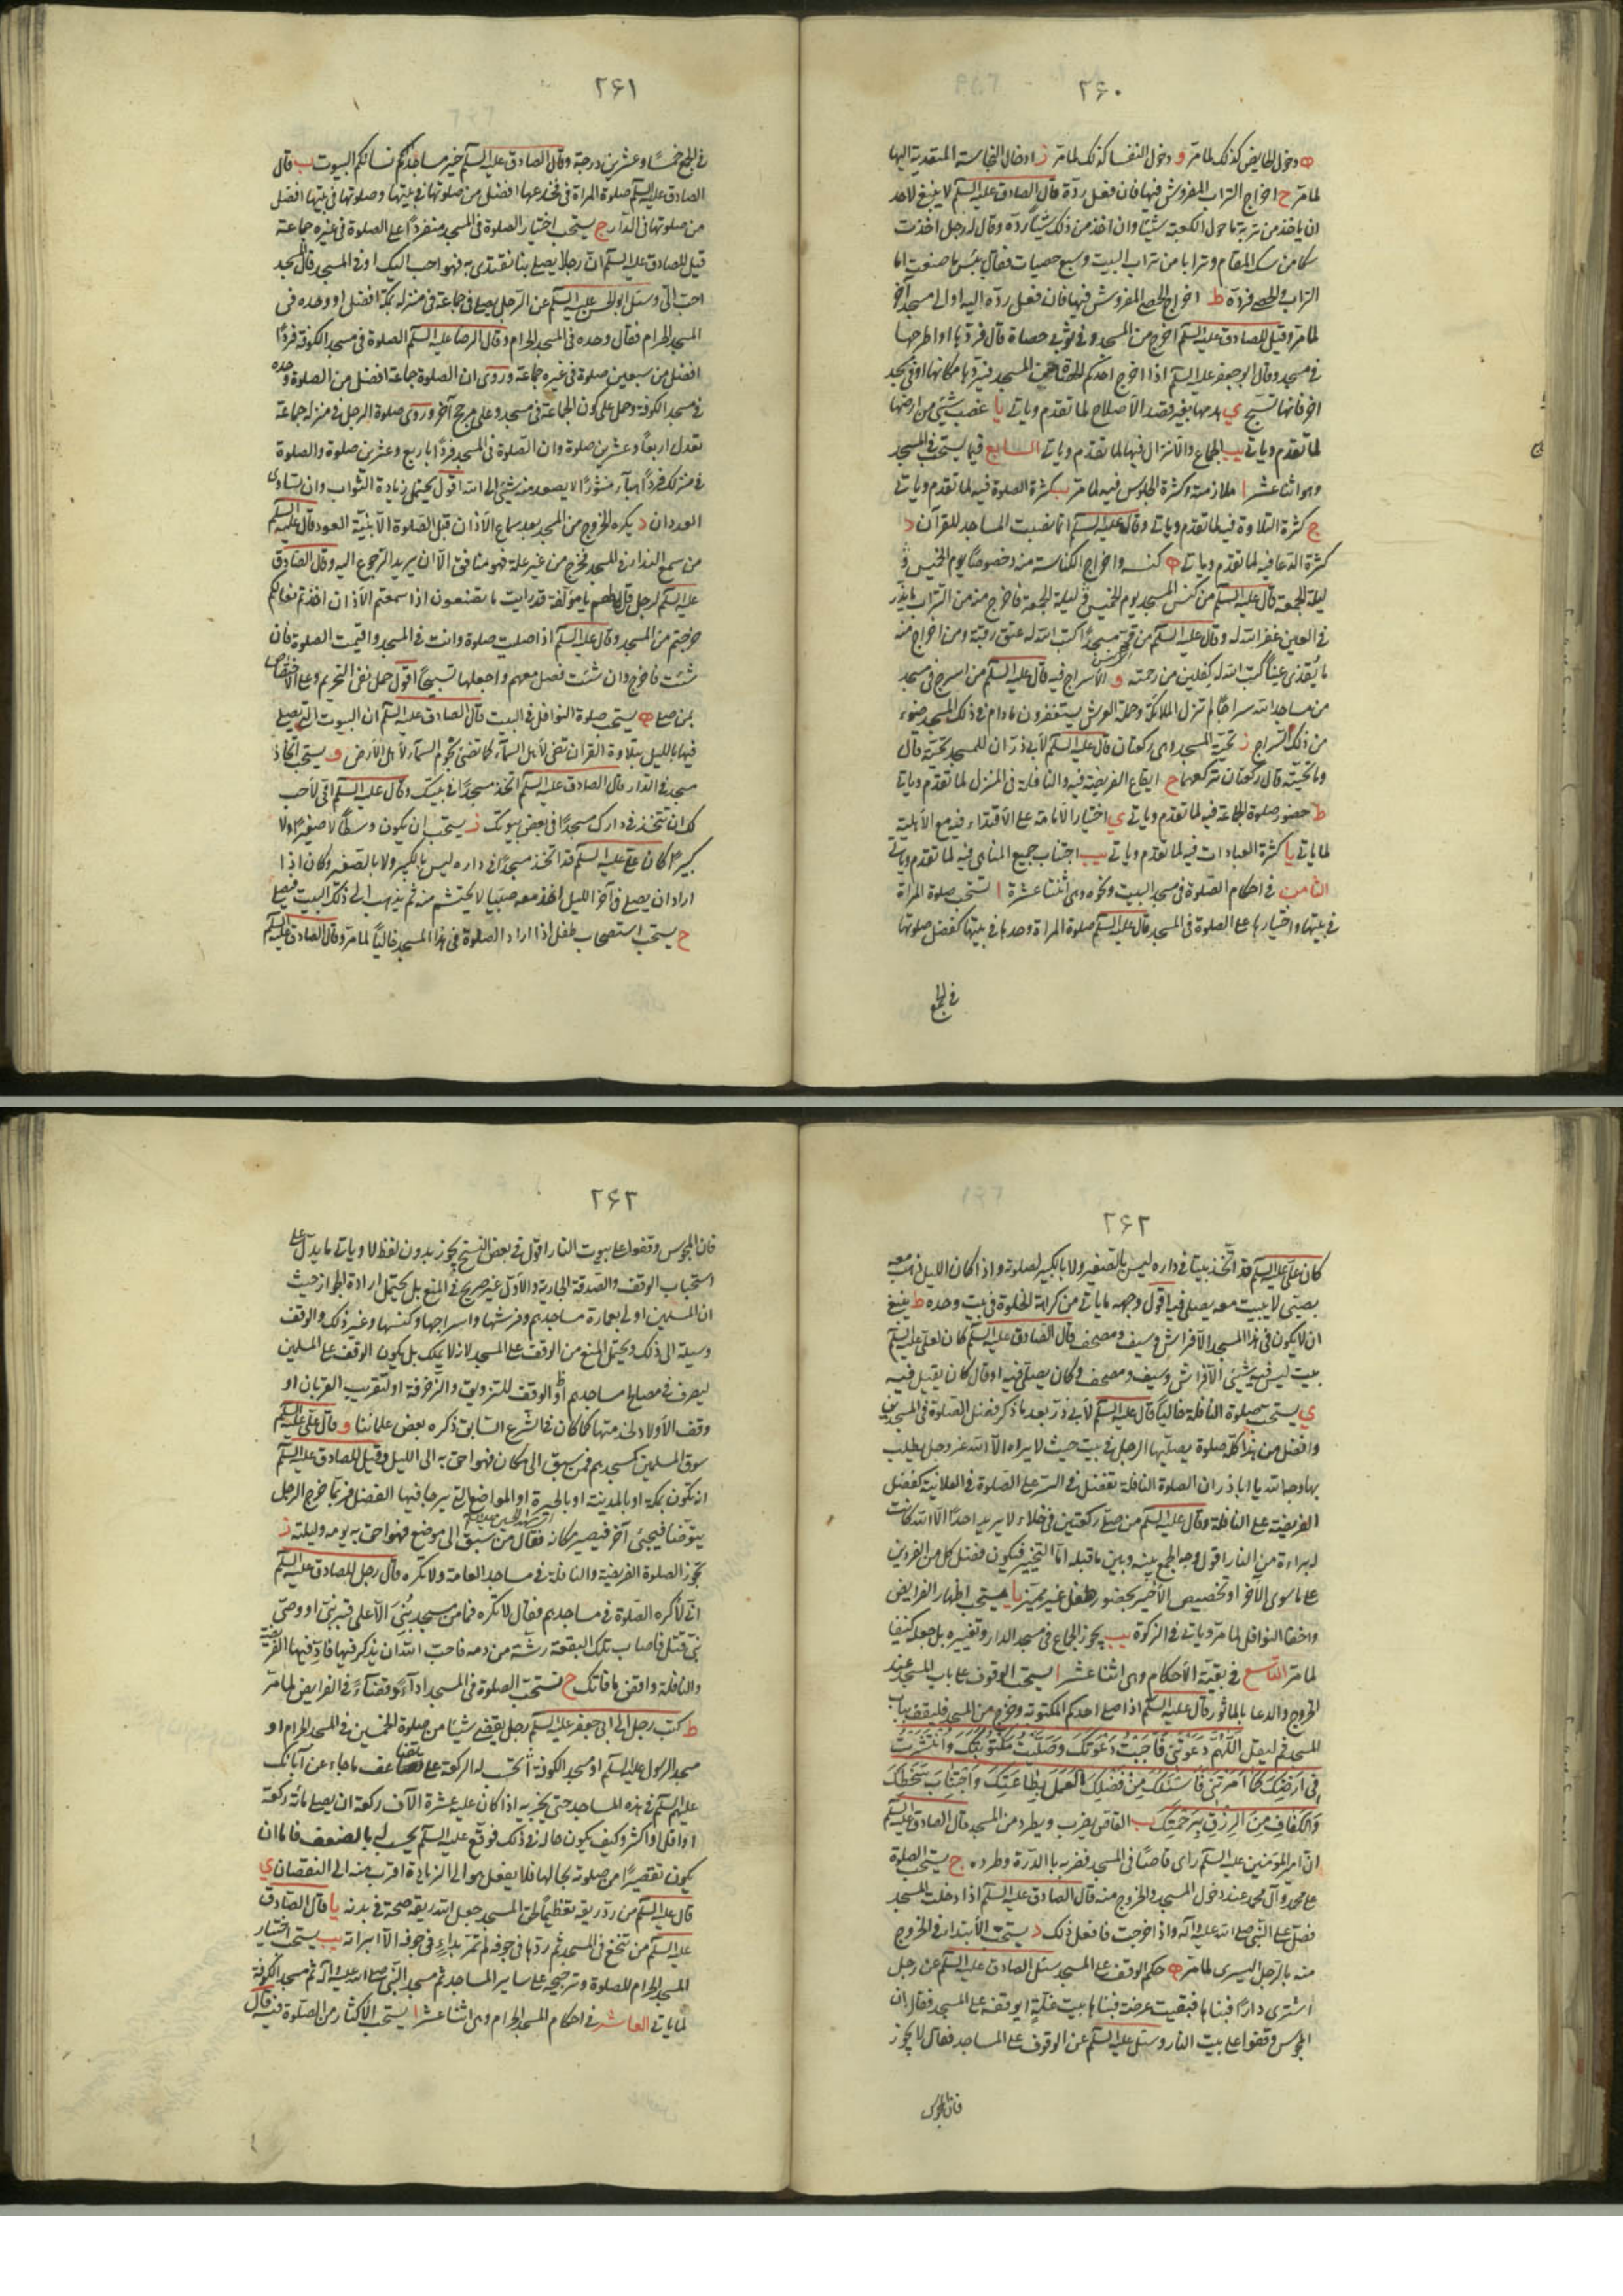 ۲۶۰
ه دخول الحايض كذلك لما مر و دخول النفسا كذلك لما مر ز ادخال النجاسة المتعدية اليها
لما مر ح اخراج التراب المفروش فيها فان فعل ردّه قال الصادق عليه السلم لا ينبغى لاحد
ان ياخذ من تربة ما حول الكعبة شيئا وان اخذ من ذلك شيئا ردّه وقال له رجل اخذت
سكا من سك المقام وترابا من تراب البيت وسبع حصيات فقال بئس ما صنعت اما
التراب والحصى فردّه ط اخراج الحصى المفروش فيها فان فعل ردّه اليه او الى مسجد آخر
لما مر وقيل للصادق عليه السلم اخرج من المسجد وفى ثوبى حصاة قال فردها او اطرحها
فى مسجد وقال ابو جعفر عليه السلم اذا اخرج احدكم الحصاة من المسجد فليردها مكانها او فى مسجد
اخر فانها تسبح ي هدمها بغير قصد الاصلاح لما تقدم وياتى يا غصب شئ من ارضها
لما تقدم وياتى يب الجماع والانزال فيها لما تقدم وياتى السابع فيما يستحب فى المسجد
وهو اثنا عشر ا ملازمته وكثرة الجلوس فيه لما مر ب كثرة الصلوة فيه لما تقدم وياتى
ج كثرة التلاوة فيه لما تقدم وياتى وقال عليه السلم انما نصبت المساجد للقرآن د
كثرة الدعا فيه لما تقدم وياتى ه كنسه واخراج الكناسة منه وخصوصا يوم الخميس و
ليلة الجمعة قال عليه السلم من كنس المسجد يوم الخميس و ليلة الجمعة فاخرج منه من التراب ما يذر
فى العين غفر الله له وقال عليه السلم من قم مسجدا كتب الله له عتق رقبة ومن اخرج منه
ما يقذى عينا كتب الله له كفلين من رحمته و الاسراج فيه قال عليه السلم من اسرج فى مسجد
من مساجد الله سراجا لم تزل الملائكة وحملة العرش يستغفرون له ما دام فى ذلك المسجد ضوء
من ذلك السراج ز تحية المسجد وهى ركعتان قال عليه السلم لابى ذر ان للمسجد تحية قال
وما تحيته قال ركعتان تركعهما ح ايقاع الفريضة فيه والنافلة فى المنزل لما تقدم وياتى
ط حضور صلوة الجماعة فيه لما تقدم وياتى ي اختيار الامامة على الاقتداء فيه مع الاهلية
لما ياتى يا كثرة العبادات فيه لما تقدم وياتى يب اجتناب جميع المناهى فيه لما تقدم وياتى
الثامن فى احكام الصلوة فى مسجد البيت ونحوه وهى اثنتا عشرة ا تستحب صلوة المراة
فى بيتها واختيارها على الصلوة فى المسجد قال عليه السلم صلوة المراة وحدها فى بيتها كفضل صلوتها
فى الجمع
۲۶۱
فى الجمع خمسا وعشرين درجة وقال الصادق عليه السلم خير مساجد نسائكم البيوت ب قال
الصادق عليه السلم صلوة المراة فى مخدعها افضل من صلوتها فى بيتها وصلوتها فى بيتها افضل
من صلوتها فى الدار ج يستحب اختيار الصلوة فى المسجد منفردا على الصلوة فى غيره جماعة
قيل للصادق عليه السلم ان رجلا يصلى بنا نقتدى به فهو احب اليك او فى المسجد قال المسجد
احب الىّ وسئل ابو الحسن عليه السلم عن الرجل يصلى فى جماعة فى منزله بمكة افضل او وحده فى
المسجد الحرام فقال وحده فى المسجد الحرام وقال الرضا عليه السلم الصلوة فى مسجد الكوفة فردا
افضل من سبعين صلوة فى غيره جماعة وروى ان الصلوة جماعة افضل من الصلوة وحده
فى مسجد الكوفة وحمل على كون الجماعة فى مسجد وعلى مرجح آخر وروى صلوة الرجل فى منزله جماعة
تعدل اربعا وعشرين صلوة وان الصلوة فى المسجد فردا باربع وعشرين صلوة والصلوة
فى منزلك فردا هباء منثورا لا يصعد منه شئ الى الله اقول يحتمل زيادة الثواب وان تساوى
العددان د يكره الخروج من المسجد بعد سماع الاذان قبل الصلوة الا بنية العود قال عليه السلم
من سمع النداء فى المسجد فخرج من غير علة فهو منافق الا ان يريد الرجوع اليه وقال الصادق
عليه السلم لرجل قل لهم يا مؤلفة قد رايت ما تصنعون اذا سمعتم الاذان اخذتم نعالكم
خرجتم من المسجد وقال عليه السلم اذا صليت صلوة وانت فى المسجد واقيمت الصلوة فان
شئت فاخرج وان شئت فصل معهم واجعلها تسبيحا اقول حمل نفى التحريم وعلى الاختصاص
بمن صلى ه يستحب صلوة النوافل فى البيت قال الصادق عليه السلم ان البيوت التى يصلى
فيها بالليل بتلاوة القرآن تضئ لاهل السماء كما تضئ نجوم السماء لاهل الارض و يستحب اتخاذ
مسجد فى الدار قال الصادق عليه السلم اتخذ مسجدا فى بيتك وقال عليه السلم انى لأحب
لك ان تتخذ فى دارك مسجدا فى بعض بيوتك ز يستحب ان يكون وسطا لا صغيرا ولا
كبيرا كان على عليه السلم قد اتخذ مسجدا فى داره ليس بالكبير ولا بالصغير وكان اذا
اراد ان يصلى فى آخر الليل اخذ معه صبيا لا يحتشم منه ثم يذهب الى ذلك البيت فيصلى
ح يستحب استصحاب طفل اذا اراد الصلوة فى هذا المسجد خاليا لما مر وقال الصادق عليه السلم
۲۶۲
كان على عليه السلم قد اتخذ بيتا فى داره ليس بالصغير ولا بالكبير لصلوته واذا كان الليل ذهب معه
بصبى لا يبيت معه يصلى فيه اقول وجهه ما ياتى من كراهة الخلوة فى بيت وحده ط ينبغى
ان لا يكون فى هذا المسجد الا فراش وسيف ومصحف قال الصادق عليه السلم كان لعلى عليه السلم
بيت ليس فيه شئ الا فراش وسيف ومصحف وكان يصلى فيه او قال كان يقيل فيه
ي يستحب صلوة النافلة خاليا قال عليه السلم لابى ذر بعد ما ذكر فضل الصلوة فى المسجدين
وافضل من هذا كله صلوة يصليها الرجل فى بيت حيث لا يراه الا الله عز وجل يطلب
بها وجه الله يا اباذر ان الصلوة النافلة تفضل فى السر على الصلوة فى العلانية كفضل
الفريضة على النافلة وقال عليه السلم من صلى ركعتين فى خلاء لا يريد احدا الا الله كانت
له براءة من النار اقول وجه الجمع بينه وبين ما قبله اما التخيير فيكون فضل كل من الفردين
على ما سوى الآخر او تخصيص الاخير بحضور طفل غير مميز يا يستحب اظهار الفرايض
واخفا النوافل لما مر وياتى فى الزكوة يب يجوز الجماع فى مسجد الدار وتغييره بل جعله كنيفا
لما مر التاسع فى بقية الاحكام وهى اثنا عشر ا يستحب الوقوف على باب المسجد عند
الخروج والدعا بالماثور قال عليه السلم اذا صلى احدكم المكتوبة وخرج من المسجد فليقف بباب
المسجد ثم ليقل اَللّهُمَّ دَعَوْتَنى فَاَجَبْتُ دَعْوَتَكَ وَصَلَّيْتُ مَكْتُوبَتَكَ وَانْتَشَرْتُ
فى اَرْضِكَ كَما اَمَرْتَنى فَاَسْئَلُكَ مِنْ فَضْلِكَ الْعَمَلَ بِطاعَتِكَ وَاجْتِنابَ سَخَطِكَ
وَالْكَفافَ مِنَ الرِّزْقِ بِرَحْمَتِكَ ب القاص يضرب ويطرد من المسجد قال الصادق عليه السلم
ان امير المؤمنين عليه السلم راى قاصا فى المسجد فضربه بالدرة وطرده ج يستحب الصلوة
على محمد وآل محمد عند دخول المسجد والخروج منه قال الصادق عليه السلم اذا دخلت المسجد
فصل على النبى صلى الله عليه وآله واذا خرجت فافعل ذلك د يستحب الابتداء فى الخروج
منه بالرجل اليسرى لما مر ه حكم الوقف على المسجد سئل الصادق عليه السلم عن رجل
اشترى دارا فبناها فبقيت عرصة فبناها بيت غلة ايوقفه على المسجد فقال ان
المجوس وقفوا على بيت النار وسئل عليه السلم عن الوقوف على المساجد فقال لا يجوز
فان المجوس
۲۶۳
فان المجوس وقفوا على بيوت النار اقول فى بعض النسخ يجوز بدون لفظ لا وياتى ما يدل على
استحباب الوقف والصدقة الجارية والاول غير صريح فى المنع بل يحتمل ارادة الجواز حيث
ان المسلمين اولى بعمارة مساجدهم وفرشها واسراجها وكنسها وغير ذلك والوقف
وسيلة الى ذلك ويحتمل المنع من الوقف على المسجد لانه لا يملك بل يكون الوقف على المسلمين
ليصرف فى مصالح مساجدهم او الوقف للتزويق والزخرفة او لتقريب القربان او
وقف الاولاد لخدمتها كما كان فى الشرع السابق ذكره بعض علمائنا و قال على عليه السلم
سوق المسلمين كمسجدهم فمن سبق الى مكان فهو احق به الى الليل وقيل للصادق عليه السلم
انا نكون بمكة او بالمدينة او بالحيرة او المواضع التى يرجا فيها الفضل فربما خرج الرجل
يتوضا فيجئ آخر فيصير مكانه فقال من سبق الى موضع فهو احق به يومه وليلته ز
تجوز الصلوة الفريضة والنافلة فى مساجد العامة ولا تكره قال رجل للصادق عليه السلم
انى لأكره الصلوة فى مساجدهم فقال لا تكره فما من مسجد بُنىَ الا على قبر نبى او وصى
نبى قتل فاصاب تلك البقعة رشة من دمه فاحب الله ان يذكر فيها فادّ فيها الفريضة
والنافلة واقض ما فاتك ح تستحب الصلوة فى المسجد اداءً وقضاءً فى الفرايض لما مر
ط كتب رجل الى ابى جعفر عليه السلم رجل يقضى شيئا من صلوة الخمسين فى المسجد الحرام او
مسجد الرسول عليه السلم او مسجد الكوفة أتحسب له الركعة على تضاعف ما جاء عن آبائك
عليهم السلم فى هذه المساجد حتى يجزيه اذا كان عليه عشرة الآف ركعة ان يصلى مائة ركعة
او اقل او اكثر وكيف يكون حاله فى ذلك فوقع عليه السلم يحسب له بالضعف فاما ان
يكون تقصيرا من صلوته بحالها فلا يفعل هو الى الزيادة اقرب منه الى النقصان ي
قال عليه السلم من ردّ ريقه تعظيما لحق المسجد جعل الله ريقه صحة فى بدنه يا قال الصادق
عليه السلم من تنخع فى المسجد ثم ردها فى جوفه لم تمر بداءٍ فى جوفه الا ابراته يب يستحب اختيار
المسجد الحرام للصلوة وترجيحه على ساير المساجد ثم مسجد النبى صلى الله عليه وآله ثم مسجد الكوفة
لما ياتى العاشر فى احكام المسجد الحرام وهى اثنا عشر ا يستحب الاكثار من الصلوة فيه قال